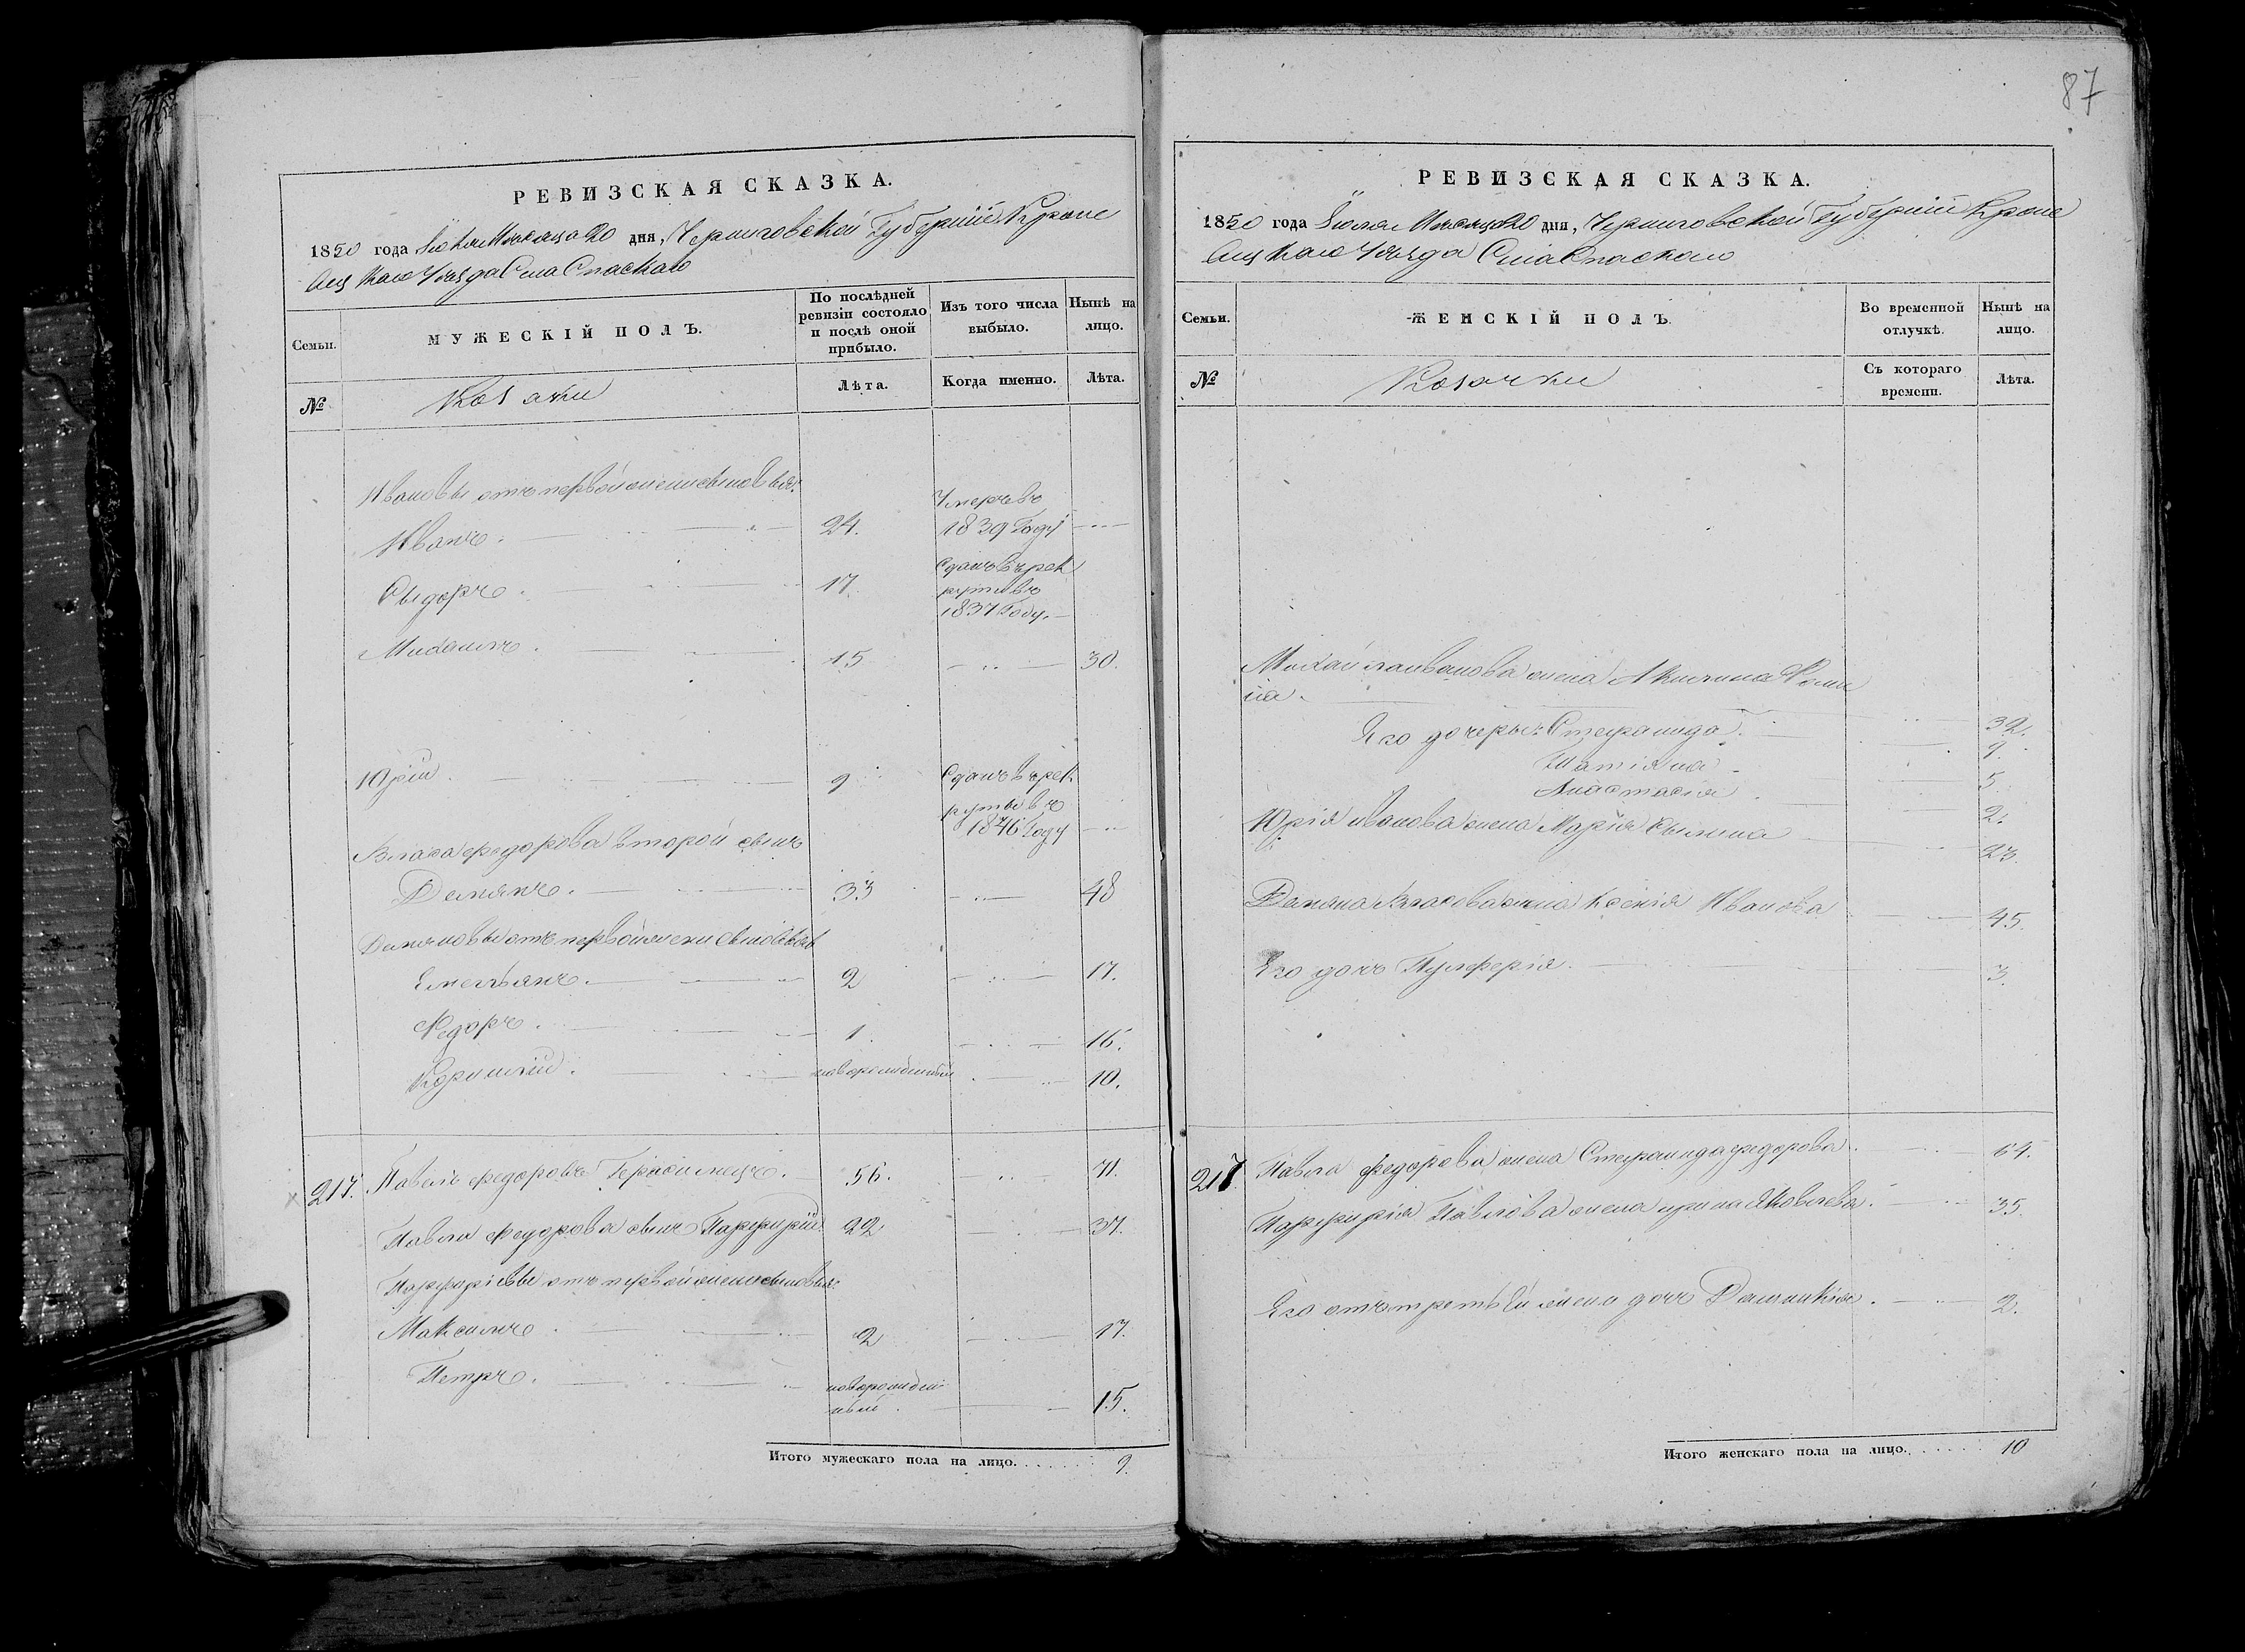 87
РЕВИЗСКАЯ СКАЗКА.
1850 года Іюля Месяца 20 дня, Черниговской Губерніи Кроле
вецкаго Уезда Села Спаскаго
Семьи.
МУЖЕСКІЙ ПОЛЪ.
По послѣдней
ревизіи состояло
и послѣ оной
прибыло.
Изъ того числа
выбыло.
Нынѣ на
лицо.
№
Козаки
Лѣта.
Когда именно.
Лѣта.
Ивановы отъ первой жены сыновья:
Иванъ. 24. Умеръ въ
1839 Году
Сыдоръ. 17. Сданъ въ рек
руты въ
1837 Году.
Михаилъ. 15 30.
Юрій. 9 Сданъ въ рек
руты въ
1846 Году
Власа Федорова второй сынъ
Демянъ. 33 48
Демяновы отъ первой жены сыновья
Емельянъ. 2 17.
Федоръ. 1. 16.
Корнилій. новорожденный 10.
217. Павелъ Федоровъ Герасимецъ. 56. 71.
Павла Федорова сынъ Парфирій 22 37.
Парфиріевы отъ первой жены сыновья:
Максимъ 2 17.
Петръ. новорожден
ный. 15.
Итого мужескаго пола на лицо. 9.
РЕВИЗСКАЯ СКАЗКА.
1850 года Іюля Месяца 20 дня, Черниговской Губерніи Кроле
вецкаго Уезда Села Спаскаго
Семьи.
ЖЕНСКІЙ ПОЛЪ.
Во временной
отлучкѣ.
Нынѣ на
лицо.
№
Козачки
Съ котораго
времени.
Лѣта.
Михайла Иванова жена Акилина Фоми
на. 32.
Его дочеры: Стефанида. 9.
Татіяна 5
Анастасія 2.
Юрія Иванова жена Марія 23.
Демяна Власова жена Ксенія Иванова 45.
Его дочь Пулферія. 3.
217. Павла Федорова жена Стефанида Федорова. 64.
Парфирія Павлова жена Ирина Яковлева. 35.
Его отъ третьей жены дочь Домникія. 2.
Итого женскаго пола на лицо. 10